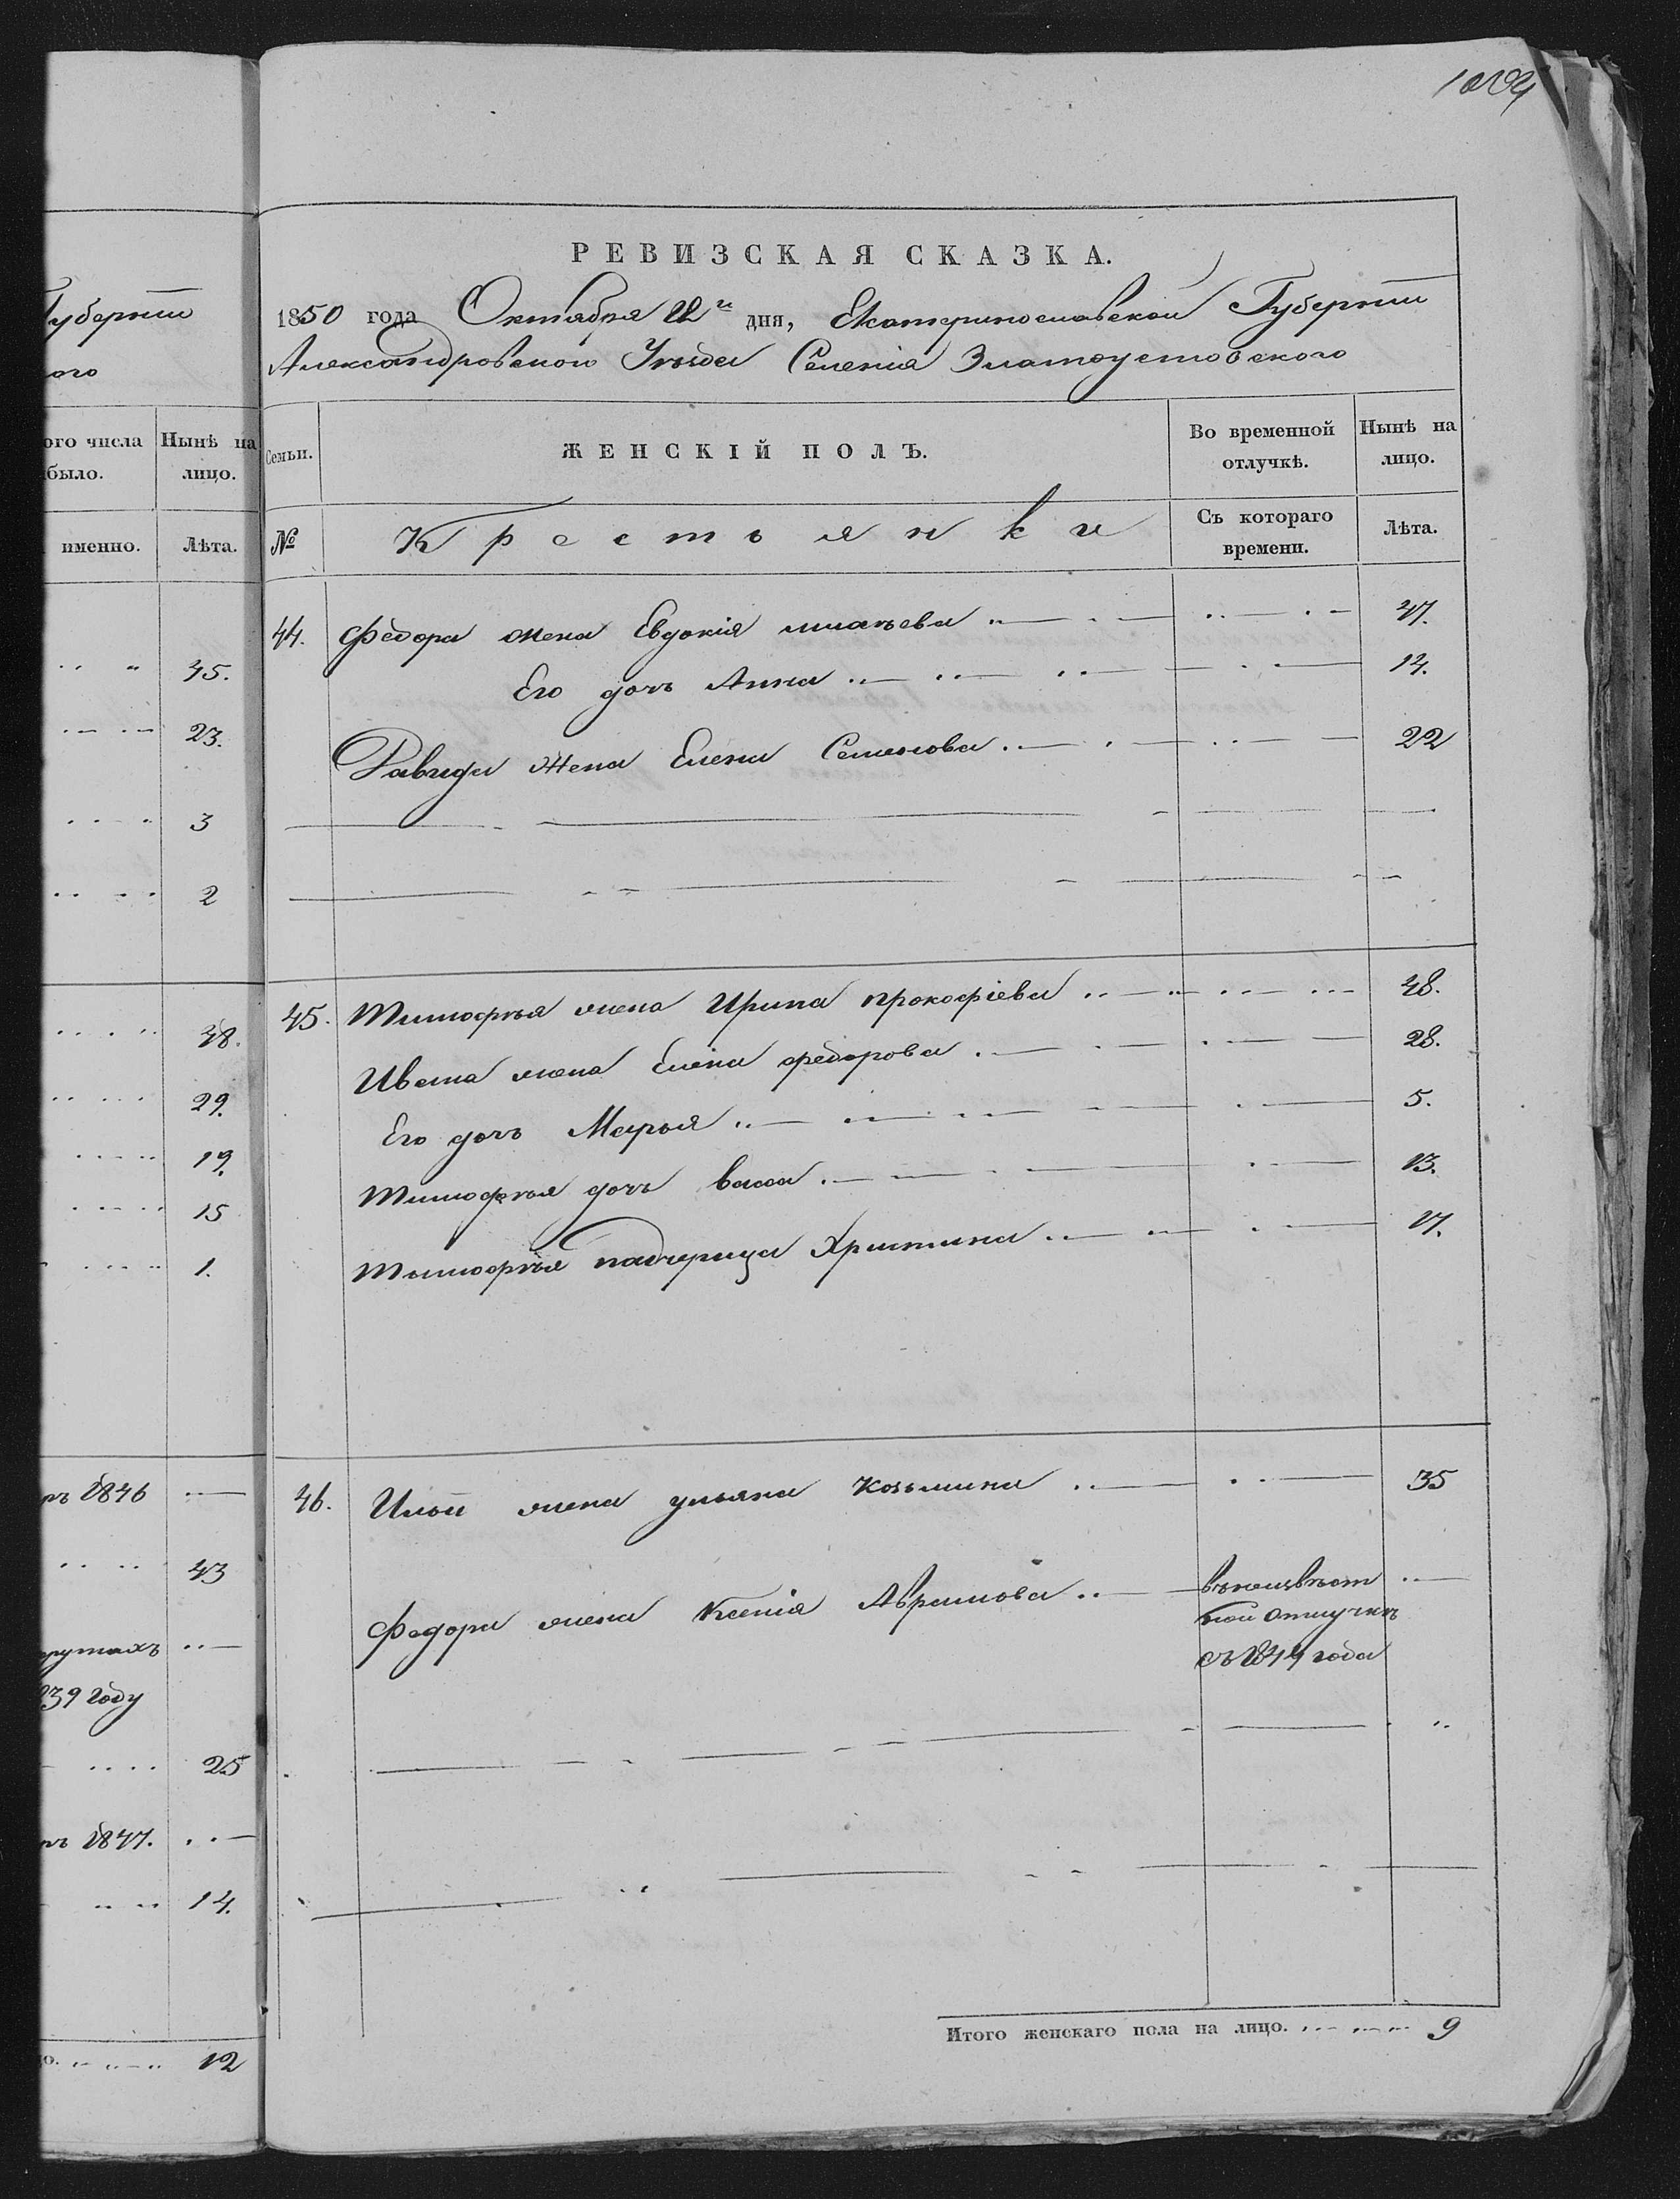 Губернии
ого
ого числа
было.
Нынѣ на
лицо.
именно.
Лѣта.
45.
23.
3
2
48.
29.
19.
15
1.
1846
43
839 году
25
1847.
14.
12
РЕВИЗСКАЯ СКАЗКА.
1850 года Октября 22го дня, Екатеринославской Губернии
Александровского Уѣзда Селенія Златоустовского
Семьи.
ЖЕНСКІЙ ПОЛЪ.
Во временной
отлучкѣ.
Нынѣ на
лицо.
№
Крестьянки
Съ котораго
времени.
Лѣта.
44. Федора жена Евдокія 47.
Его дочь Анна 14.
Давида жена Елена Семенова 22
45. Тимофѣя жена Ирина прокофіева 48.
Ивана жена Елена федорова 28.
Его дочь Марья 5.
Тимофѣя дочь васа 13.
Тимофѣя падчерица Христина 17.
46. Ильи жена ульяна козьмина 35
Федора жена Ксенія Аврамова въ неизвѣст
ной отлучкѣ
съ 1844 года
Итого женскаго пола на лицо. 9